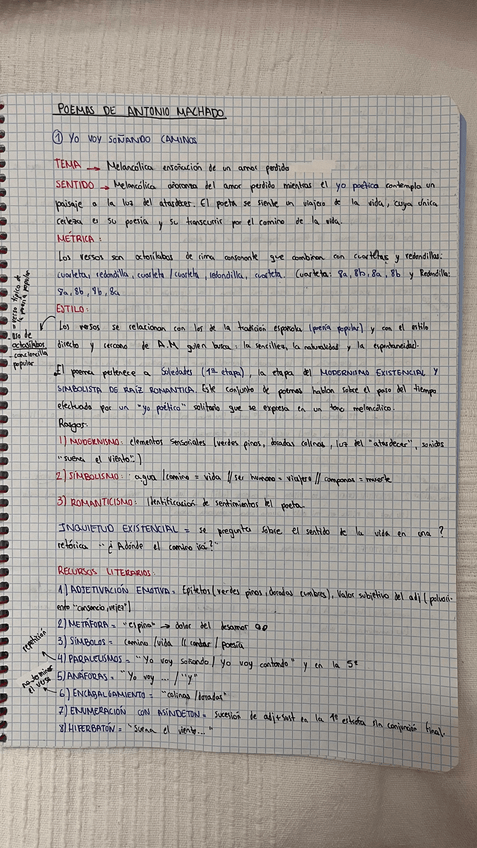 POEMAS DE ANTONIO MACHADO
① YO VOY SOÑANDO CAMINOS
TEMA → Melancólica ensoñación de un amor perdido
SENTIDO → Melancólica añoranza del amor perdido mientras el yo poético contempla un
paisaje a la luz del atardecer. El poeta se siente un viajero de la vida, cuya única
certeza es su poesía y su transcurrir por el camino de la vida.
MÉTRICA:
Los versos son octosílabos de rima consonante que combinan con cuartetas y redondillas:
cuarteta, redondilla, cuarteta / cuarteta, redondilla, cuarteta. Cuarteta: 8a, 8b, 8a, 8b y Redondilla:
8a, 8b, 8b, 8a
ESTILO:
Los versos se relacionan con los de la tradición española (poesía popular) y con el estilo
directo y cercano de A.M quien busca: la sencillez, la naturalidad y la espontaneidad.
→ verso típico de la poesía popular
- Uso de octosílabos
- cancioncilla popular
El poema pertenece a Soledades (1ª etapa), la etapa del MODERNISMO EXISTENCIAL Y
SIMBOLISTA DE RAÍZ ROMANTICA. Este conjunto de poemas hablan sobre el paso del tiempo
efectuado por un "yo poético" solitario que se expresa en un tono melancólico.
Rasgos:
1) MODERNISMO: elementos sensoriales (verdes pinos, doradas colinas, luz del "atardecer", sonidos
"suena el viento".)
2) SIMBOLISMO: agua / camino = vida // ser humano = viajero // campanas = muerte
3) ROMANTICISMO: Identificación de sentimientos del poeta.
INQUIETUD EXISTENCIAL = se pregunta sobre el sentido de la vida en una ?
retórica "¿Adónde el camino irá?"
RECURSOS LITERARIOS:
1) ADJETIVACIÓN EMOTIVA = Epítetos (verdes pinos, doradas cumbres), Valor subjetivo del adj (polvori-
ento "cansancio, vejez")
2) METÁFORA = "espina" → dolor del desamor
3) SÍMBOLOS = camino / vida // cantar / poesía
repetición
4) PARALELISMOS = "Yo voy soñando / Yo voy cantando" y en la 5ª
5) ANÁFORAS = "Yo voy ... / "y"
no termina el verso
6) ENCABALGAMIENTO = "colinas / doradas"
7) ENUMERACIÓN CON ASÍNDETON = sucesión de adj + sust en la 1ª estrofa sin conjunción final.
8) HIPERBATÓN = "Suena el viento..."